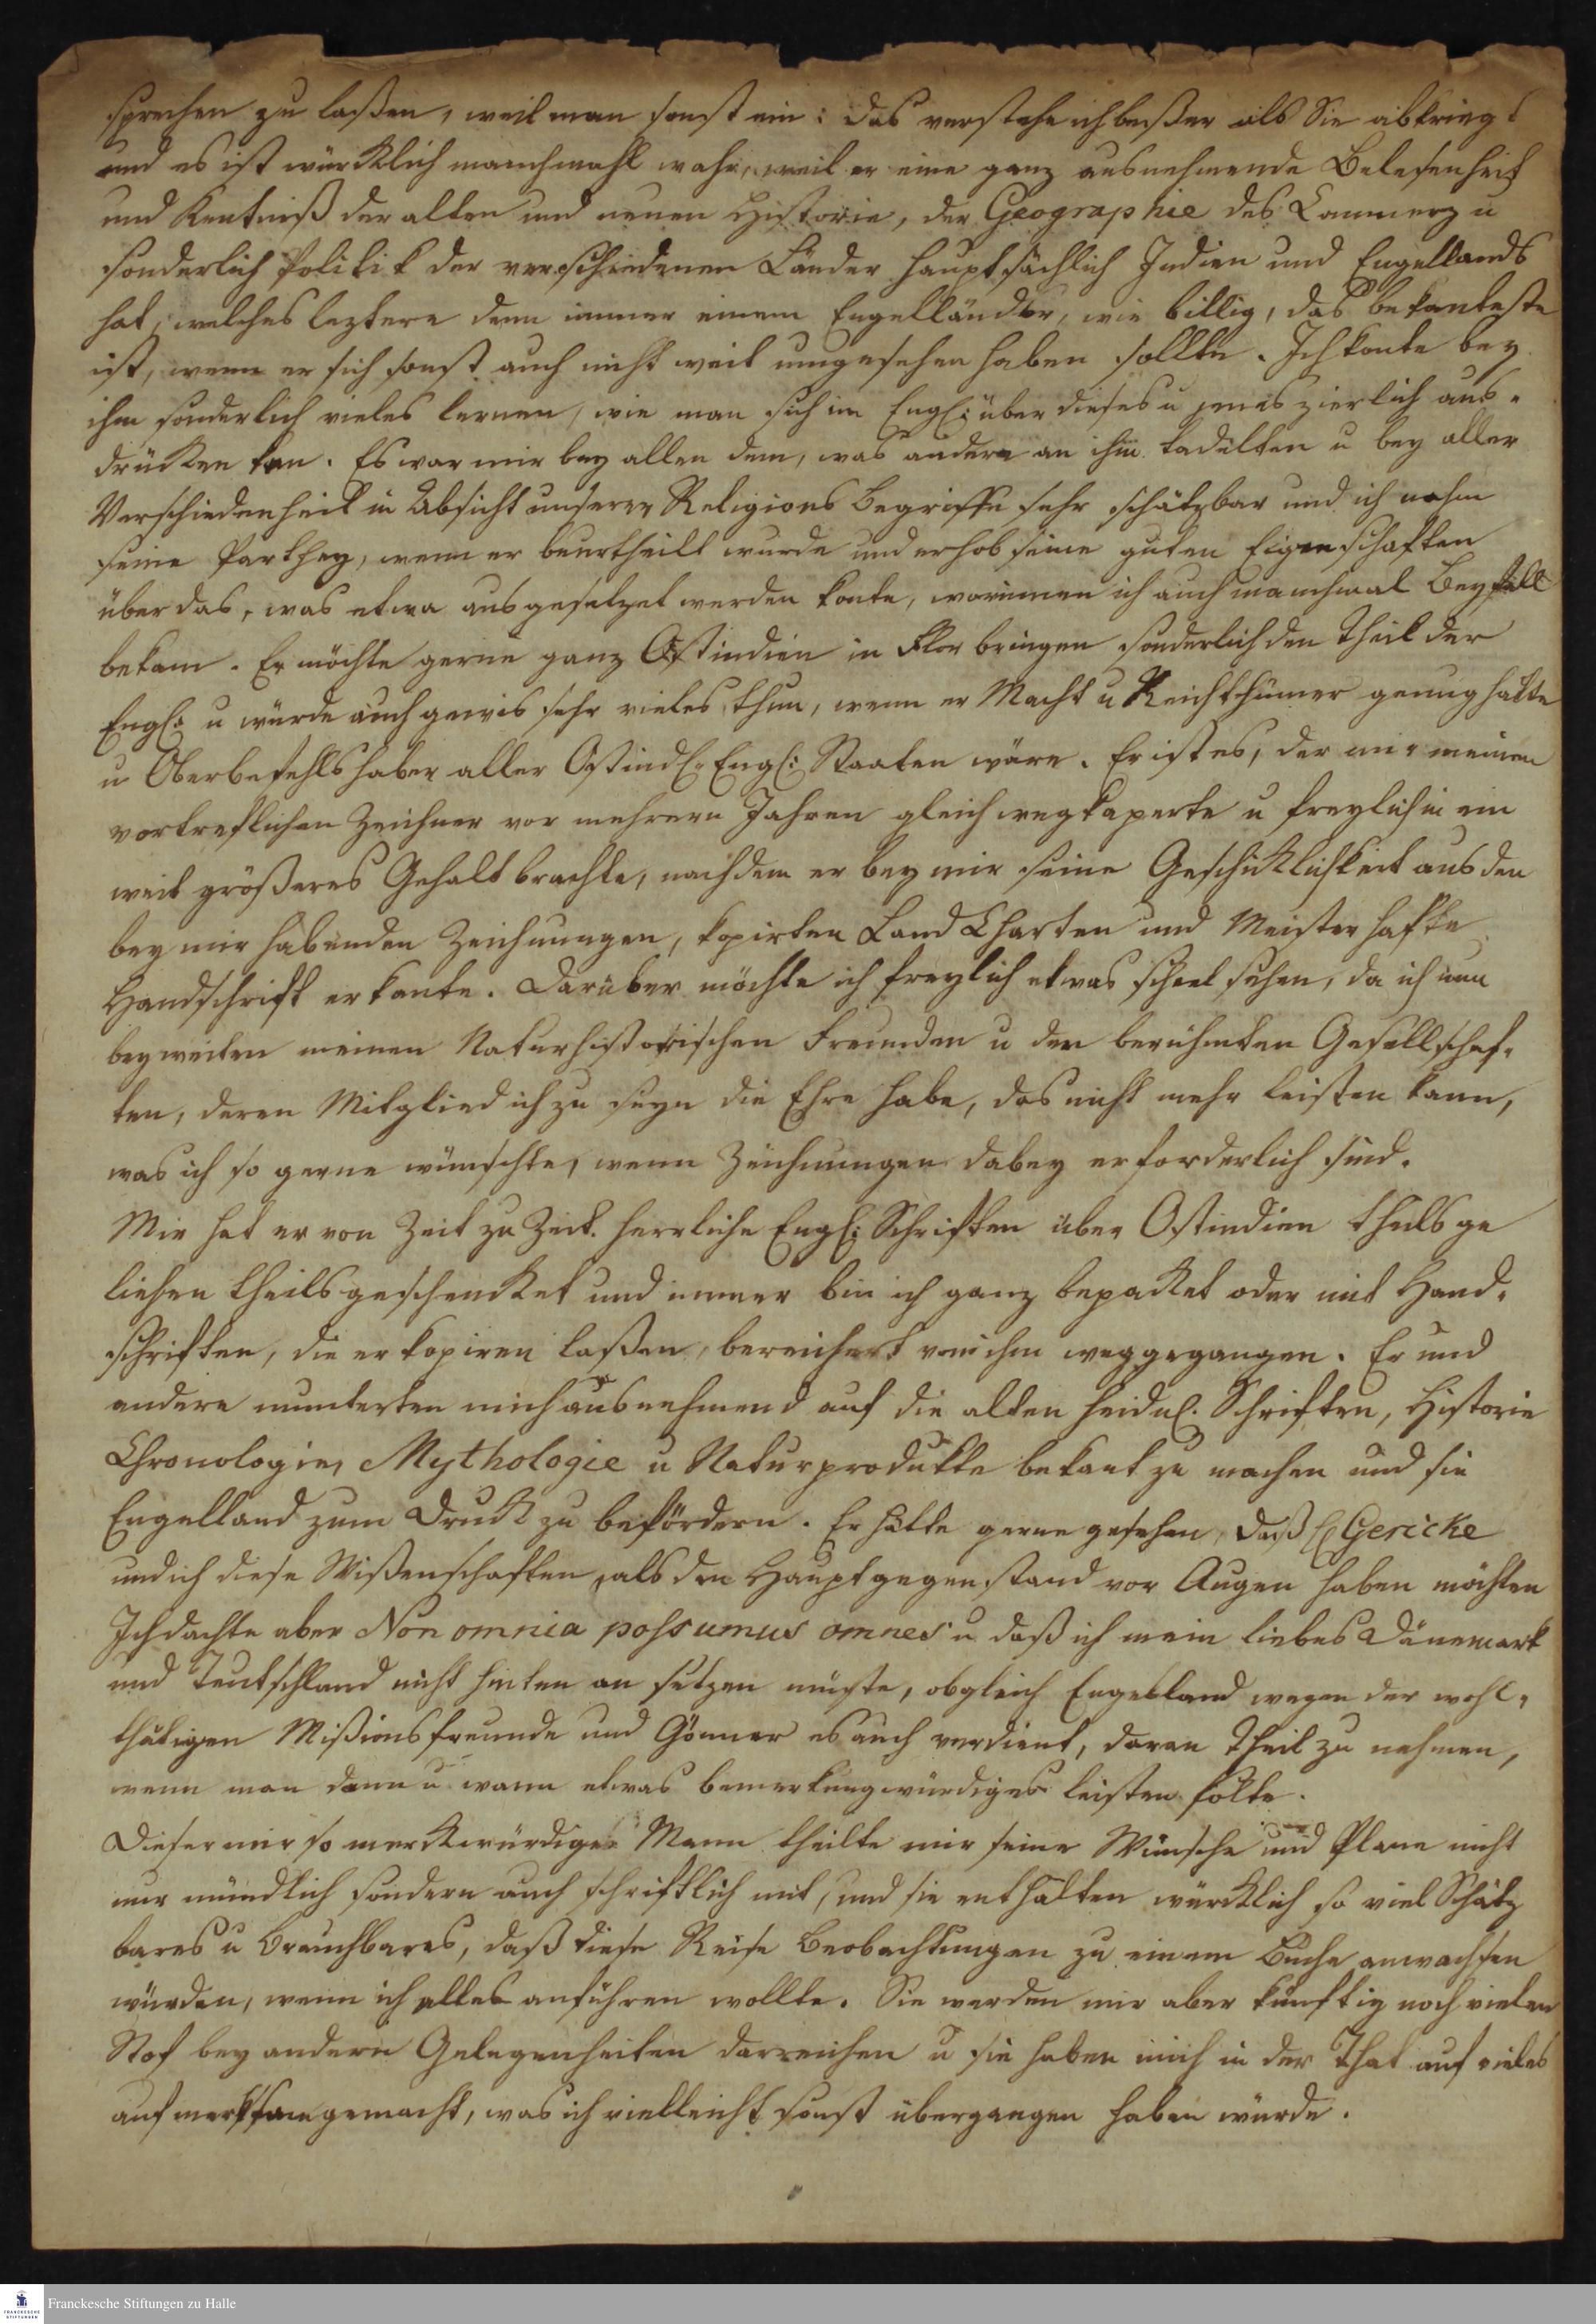 sprechen zu laßen, weil man sonst ein: das verstehe ich beßer als Sie abkriegt
und es ist würcklich manchmahl wahr, weil er eine ganz ausnehmende Belesenheit
und Kentniß der alten und neuen Historie, der Geographie des Commerz u
sonderlich Politik der verschiedenen Länder hauptsächlich Indien und Engellands
hat, welches leztere denn immer einem Engelländer, wie billig, das bekanteste
ist, wenn er sich sonst auch nicht weit umgesehen haben sollte. Ich konte bey
ihm sonderlich vieles lernen, wie man sich im Engl: über dieses u jenes zierlich aus-
drücken kan. Es war mir bey allen dem, was andere an ihm tadelten u bey aller
Verschiedenheit in Absicht unserer Religions Begriffe sehr schätzbar und ich nahm
seine Parthey, wenn er beurtheilt wurde und erhob seine guten Eigenschaften
über das, was etwa ausgesetzet werden konte, worinnen ich auch manchmal Beyfall
bekam. Er möchte gerne ganz Ostindien in Flor bringen sonderlich den Theil der
Engl: u würde auch gewis sehr vieles thun, wenn er Macht u Reichthümer genug hätte
u Oberbefehlshaber aller Ostindl: Engl: Staaten wäre. Er ist es, der mir meinen
vortreflichen Zeichner vor mehrern Jahren gleich wegkaperte u freylich in ein
weit größeres Gehalt brachte, nachdem er bey mir seine Geschicklichkeit aus den
bey mir habenden Zeichnungen, kopirten Land Charten und Meisterhafte
Handschrift erkante. Darüber möchte ich freylich etwas scheel sehen, da ich nun
bey weiten meinen Naturhistorischen Freunden u den berühmten Gesellschaf-
ten, deren Mitglied ich zu seyn die Ehre habe, das nicht mehr leisten kann,
was ich so gerne wünschte, wenn Zeichnungen dabey erforderlich sind.
Mir hat er von Zeit zu Zeit herrliche Engl: Schriften über Ostindien theils ge
liehen theils geschencket und immer bin ich ganz bepacket oder mit Hand-
schriften, die er kopiren laßen, bereichert von ihm weggegangen. Er und
andere munterten mich ausnehmend auf die alten heidnl. Schriften, Historie
Chronologie, Mythologie u Naturprodukte bekant zu machen und sie
Engelland zum Druck zu befördern. Er hätte gerne gesehen, daß H Gericke
und ich diese Wißenschaften als den Hauptgegenstand vor Augen haben möchten
Ich dachte aber Non omnia possumus omnes u daß ich mein liebes Dänemark
und Teutschland nicht hinten an setzen müste, obgleich Engelland wegen der wohl-
thätigen Mißionsfreunde und Gönner es auch verdient, daran Theil zu nehmen,
wenn man dann u wann etwas bemerkungwürdiges leisten solte.
Dieser mir so merckwürdiger Mann theilte mir seine Wünsche und Plane nicht
nur mündlich sondern auch schriftlich mit, und sie enthalten würcklich so viel Schätz
bares u Brauchbares, daß diese Reise Beobachtungen zu einem Buche anwachsen
würden, wenn ich alles anführen wollte. Sie werden mir aber künftig noch vielen
Stof bey andern Gelegenheiten darreichen u sie haben mich in der That auf vieles
aufmerksam gemacht, was ich vielleicht sonst übergangen haben würde.
Franckesche Stiftungen zu Halle